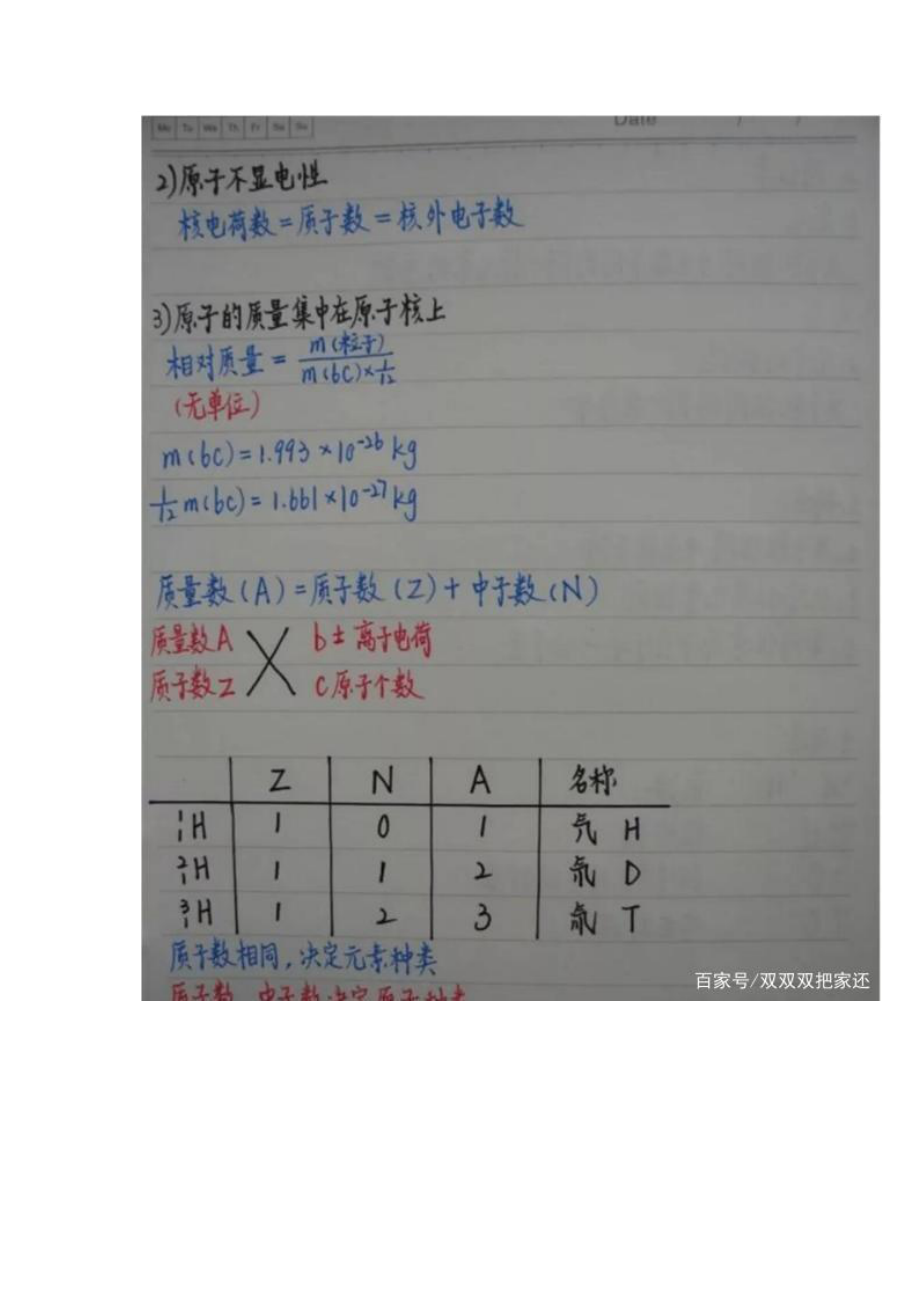 Mo Tu We Th Fr Sa Su Date / /
2)原子不显电性
核电荷数=质子数=核外电子数
3)原子的质量集中在原子核上
相对质量 = m(粒子) / m(6C)×1/12
(无单位)
m(6C)=1.993×10⁻²⁶kg
1/12 m(6C)=1.661×10⁻²⁷kg
质量数(A)=质子数(Z)+中子数(N)
质量数A X b± 离子电荷
质子数Z C原子个数
Z N A 名称
¹₁H 1 0 1 氕 H
²₁H 1 1 2 氘 D
³₁H 1 2 3 氚 T
质子数相同,决定元素种类
质子数、中子数决定原子种类
百家号/双双双把家还